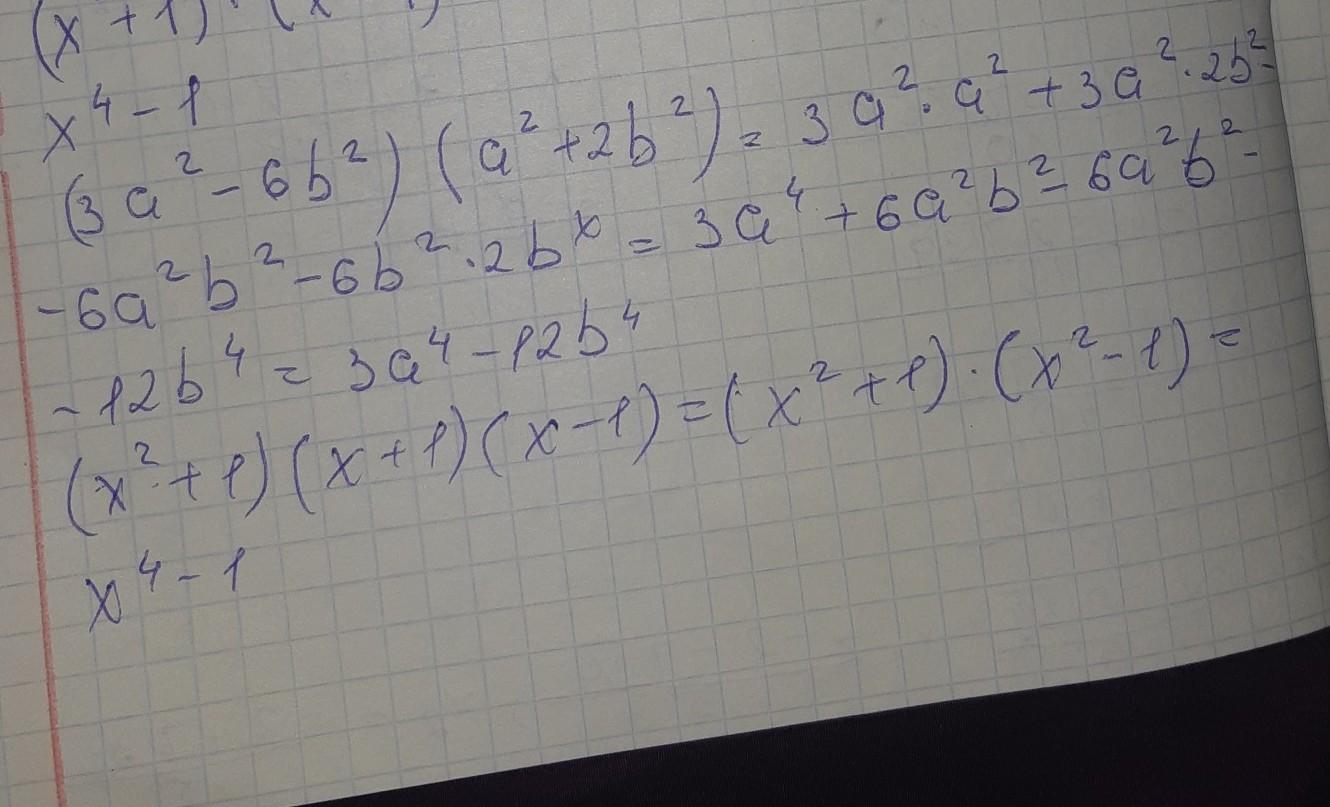 (x + 1) · (x
x⁴ - 1
(3a² - 6b²)(a² + 2b²) = 3a² · a² + 3a² · 2b² -
- 6a²b² - 6b² · 2bˣ = 3a⁴ + 6a²b² - 6a²b² -
- 12b⁴ = 3a⁴ - 12b⁴
(x² + 1)(x + 1)(x - 1) = (x² + 1) · (x² - 1) =
x⁴ - 1